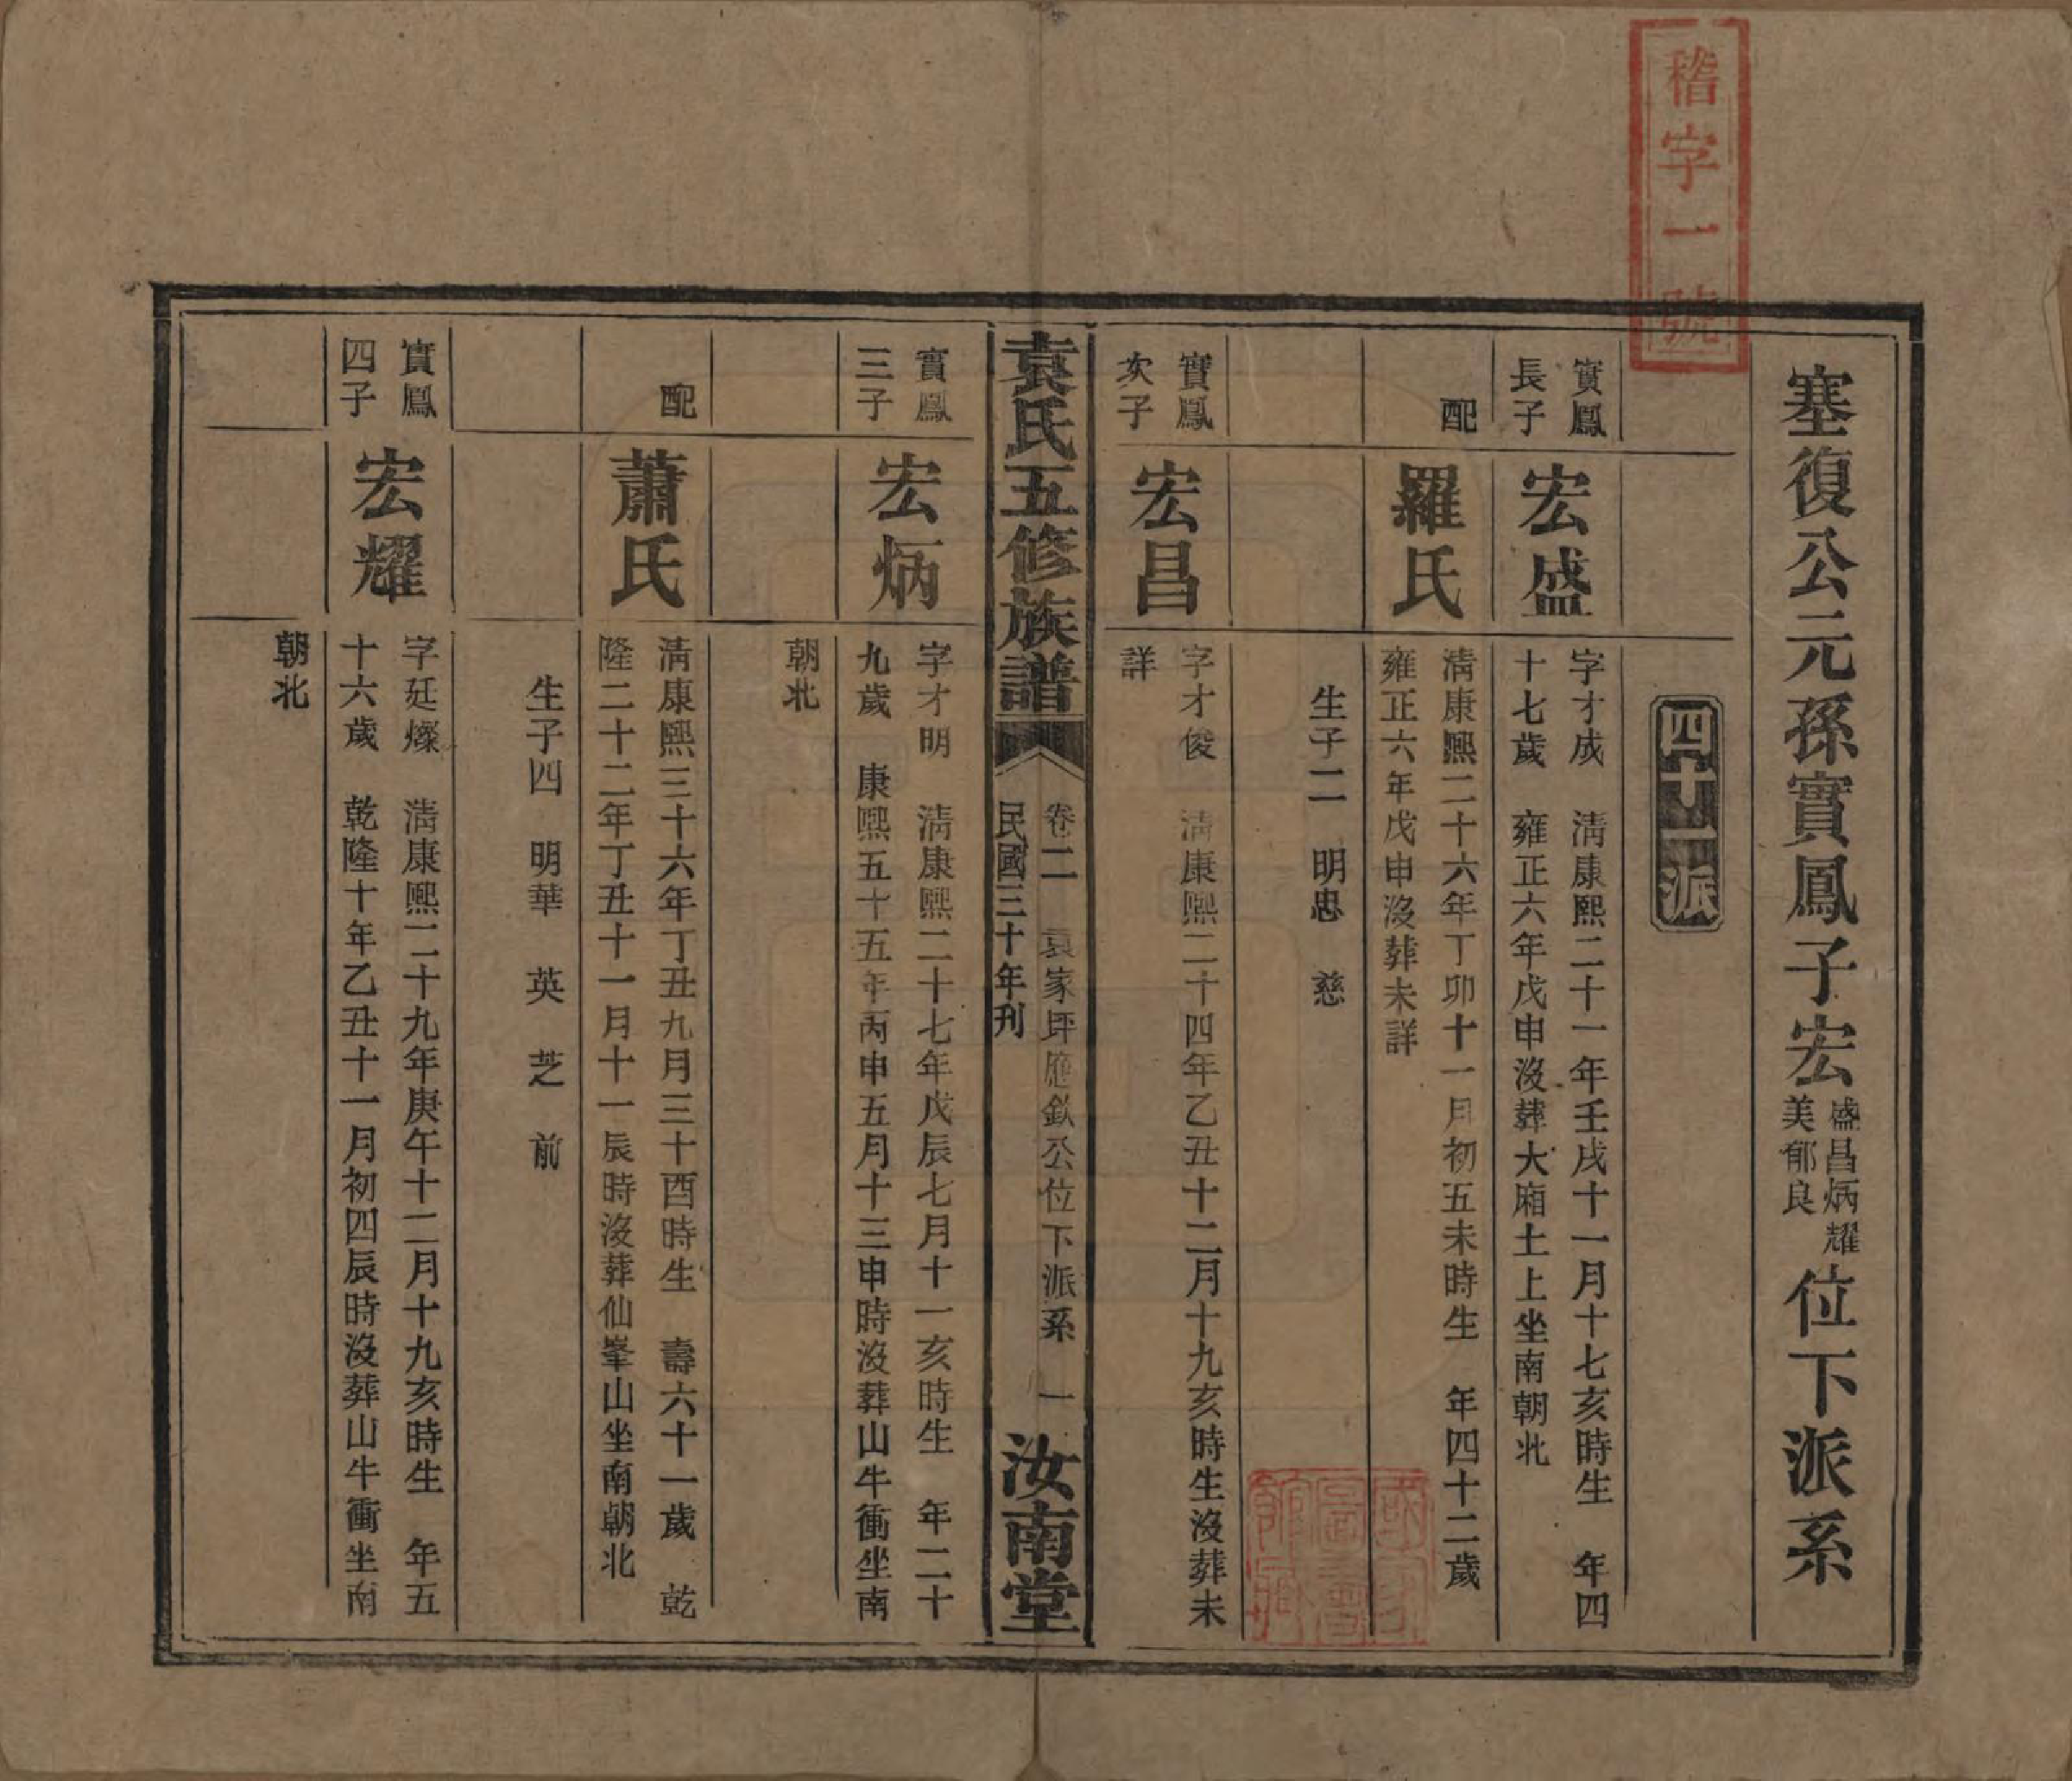 稽字一號
塞復公元孫實鳳子宏盛昌炳耀美郁良位下派系
四十一派
實鳳長子
宏盛
字才成　淸康熙二十一年壬戌十一月十七亥時生　年四
十七歲　雍正六年戊申沒葬大廂土上坐南朝北
配
羅氏
淸康熙二十六年丁卯十一月初五未時生　年四十二歲
雍正六年戊申沒葬未詳
生子二　明忠　慈
實鳳次子
宏昌
字才俊　淸康熙二十四年乙丑十二月十九亥時生沒葬未
詳
袁氏五修族譜
卷二　袁家坪應欽公位下派系　一
民國三十年刊
汝南堂
實鳳三子
宏炳
字才明　淸康熙二十七年戊辰七月十一亥時生　年二十
九歲　康熙五十五年丙申五月十三申時沒葬山牛衝坐南
朝北
配
蕭氏
淸康熙三十六年丁丑九月三十酉時生　壽六十一歲　乾
隆二十二年丁丑十一月十一辰時沒葬仙峯山坐南朝北
生子四　明華　英　芝　前
實鳳四子
宏耀
字廷燦　淸康熙二十九年庚午十二月十九亥時生　年五
十六歲　乾隆十年乙丑十一月初四辰時沒葬山牛衝坐南
朝北